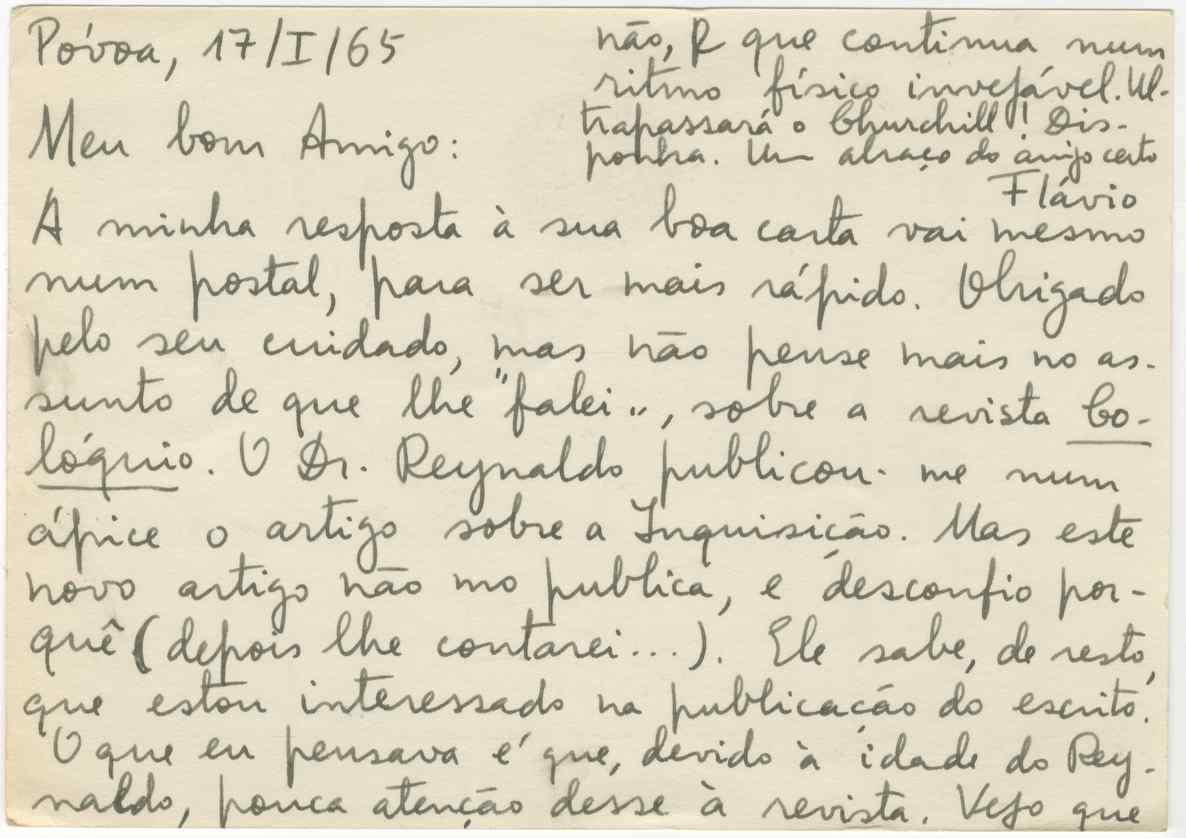 Póvoa, 17/I/65
Meu bom Amigo:
A minha resposta à sua boa carta vai mesmo
num postal, para ser mais rápido. Obrigado
pelo seu cuidado, mas não pense mais no as-
sunto de que lhe "falei", sobre a revista Co-
lóquio. O Dr. Reynaldo publicou-me num
ápice o artigo sobre a Inquisição. Mas este
novo artigo não mo publica, e desconfio por-
quê (depois lhe contarei...). Ele sabe, de resto,
que estou interessado na publicação do escrito.
O que eu pensava é que, devido à idade do Rey-
naldo, pouca atenção desse à revista. Vejo que
não, R que continua num
ritmo físico invejável. Ul-
trapassará o Churchill! Dis-
ponha. Um abraço do amigo certo
Flávio